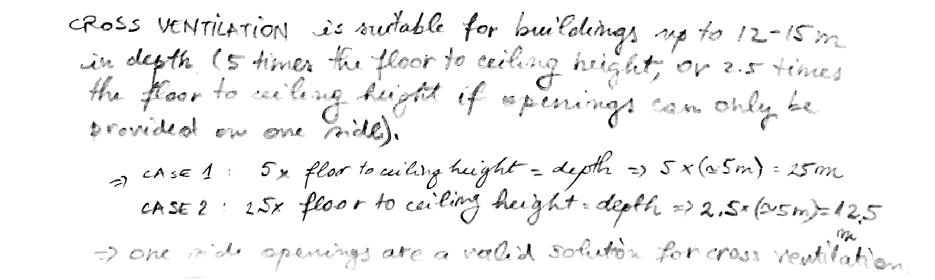 CROSS VENTILATION is suitable for buildings up to 12-15 m
in depth (5 times the floor to ceiling height, or 2.5 times
the floor to ceiling height if openings can only be
provided on one side).
⇒ CASE 1 : 5x floor to ceiling height = depth ⇒ 5x(≈5m) = 25m
CASE 2 : 2,5x floor to ceiling height = depth ⇒ 2,5x(≈5m)=12,5
m
⇒ one side openings are a valid solution for cross ventilation